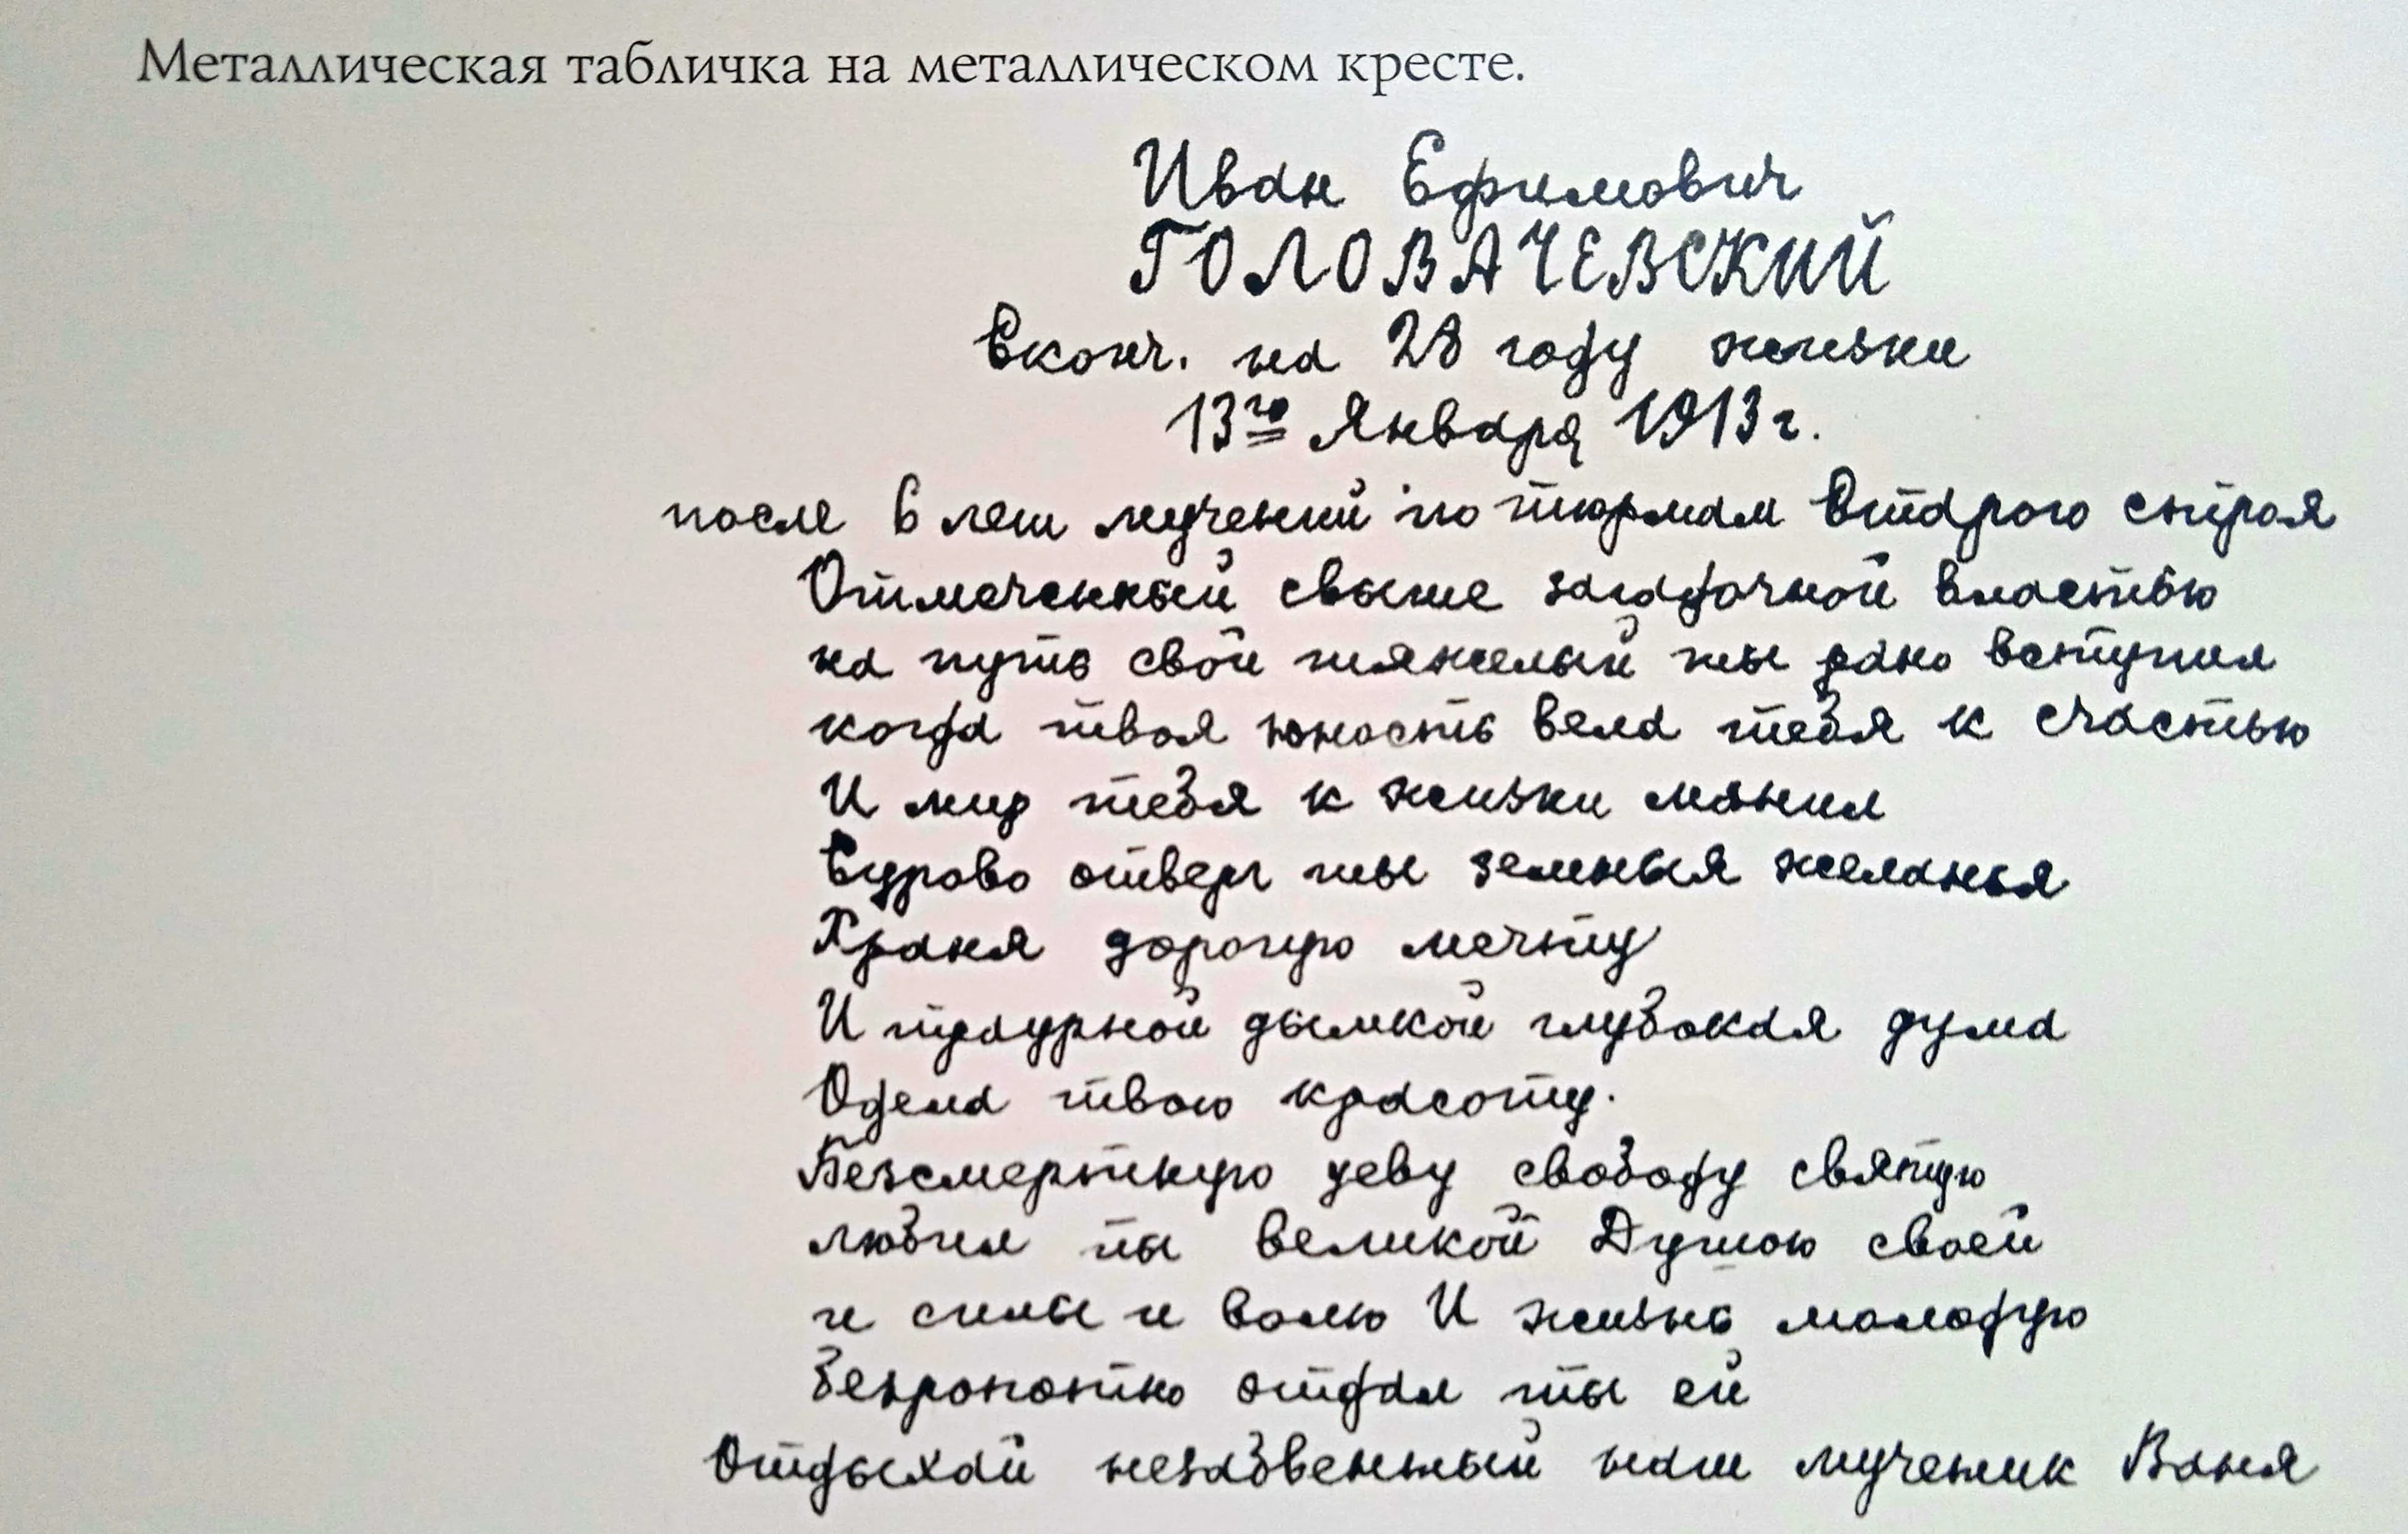 Металлическая табличка на металлическом кресте.
Иван Ефимович
ГОЛОВАЧЕВСКИЙ
Сконч. на 28 году жизни
13го Января 1913 г.
после 6 лет мучений по тюрмам Старого строя
Отмеченный свыше загадочной властью
на путь свой тяжелый ты рано вступил
когда твоя юность вела тебя к счастью
И мир тебя к жизни манил
Сурово отверг ты земныя желанья
Храня дорогую мечту
И траурной дымкой глубокая дума
Одела твою красоту.
Безсмертную деву свободу святую
любил ты великой Душою своей
и силы и волю И жизнь молодую
безропотно отдал ты ей
Отдыхай незабвенный наш мученик Ваня